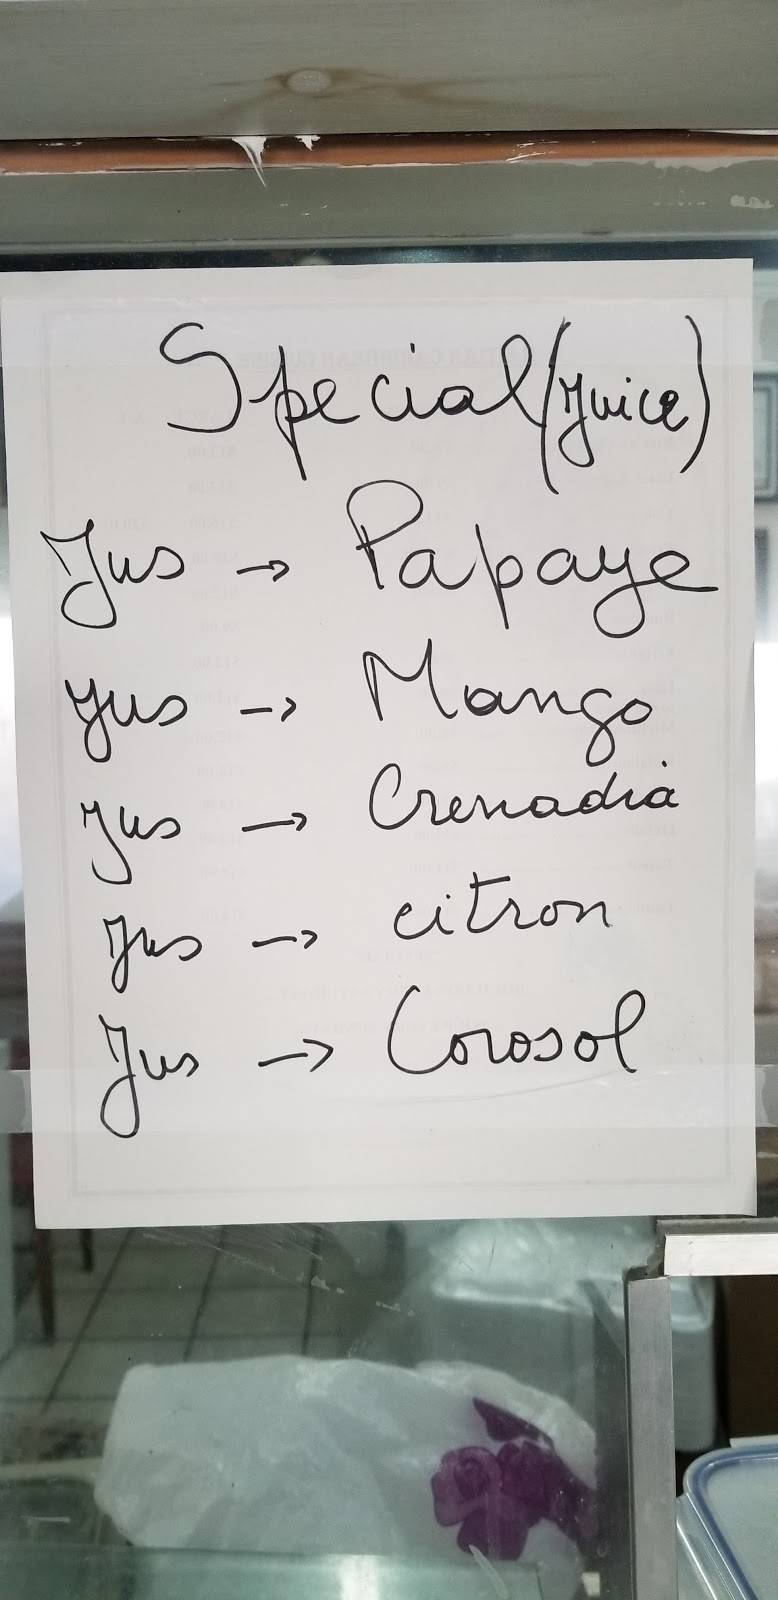 Special (juice)
Jus → Papaye
jus → Mango
jus → Crenadia
jus → citron
Jus → Corosol